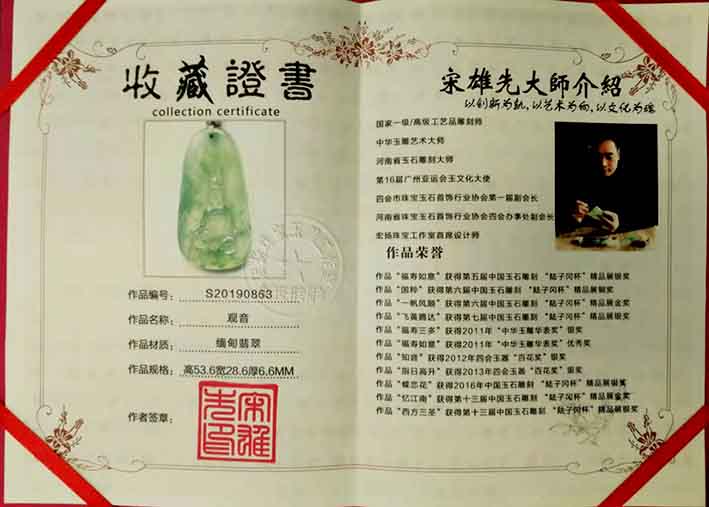 收藏證書
collection certificate
作品编号: S20190863
作品名称: 观音
作品材质: 缅甸翡翠
作品规格: 高53.6宽28.6厚6.6MM
作者签章:
宋雄先印
宋雄先大師介紹
以创新为肌,以艺术为向,以文化为魂
国家一级/高级工艺品雕刻师
中华玉雕艺术大师
河南省玉石雕刻大师
第16届广州亚运会玉文化大使
四会市珠宝玉石首饰行业协会第一届副会长
河南省珠宝玉石首饰行业协会四会办事处副会长
宏扬珠宝工作室首席设计师
作品荣誉
作品“福寿如意”获得第五届中国玉石雕刻“陆子冈杯”精品展银奖
作品“国粹”获得第六届中国玉石雕刻“陆子冈杯”精品展铜奖
作品“一帆风顺”获得第六届中国玉石雕刻“陆子冈杯”精品展金奖
作品“飞黄腾达”获得第七届中国玉石雕刻“陆子冈杯”精品展银奖
作品“福寿三多”获得2011年“中华玉雕华表奖”银奖
作品“福寿如意”获得2011年“中华玉雕华表奖”优秀奖
作品“知音”获得2012年四会玉器“百花奖”银奖
作品“指日高升”获得2013年四会玉器“百花奖”铜奖
作品“蝶恋花”获得2016年中国玉石雕刻“陆子冈杯”精品展银奖
作品“忆江南”获得第十三届中国玉石雕刻“陆子冈杯”精品展金奖
作品“西方三圣”获得第十三届中国玉石雕刻“陆子冈杯”精品展银奖